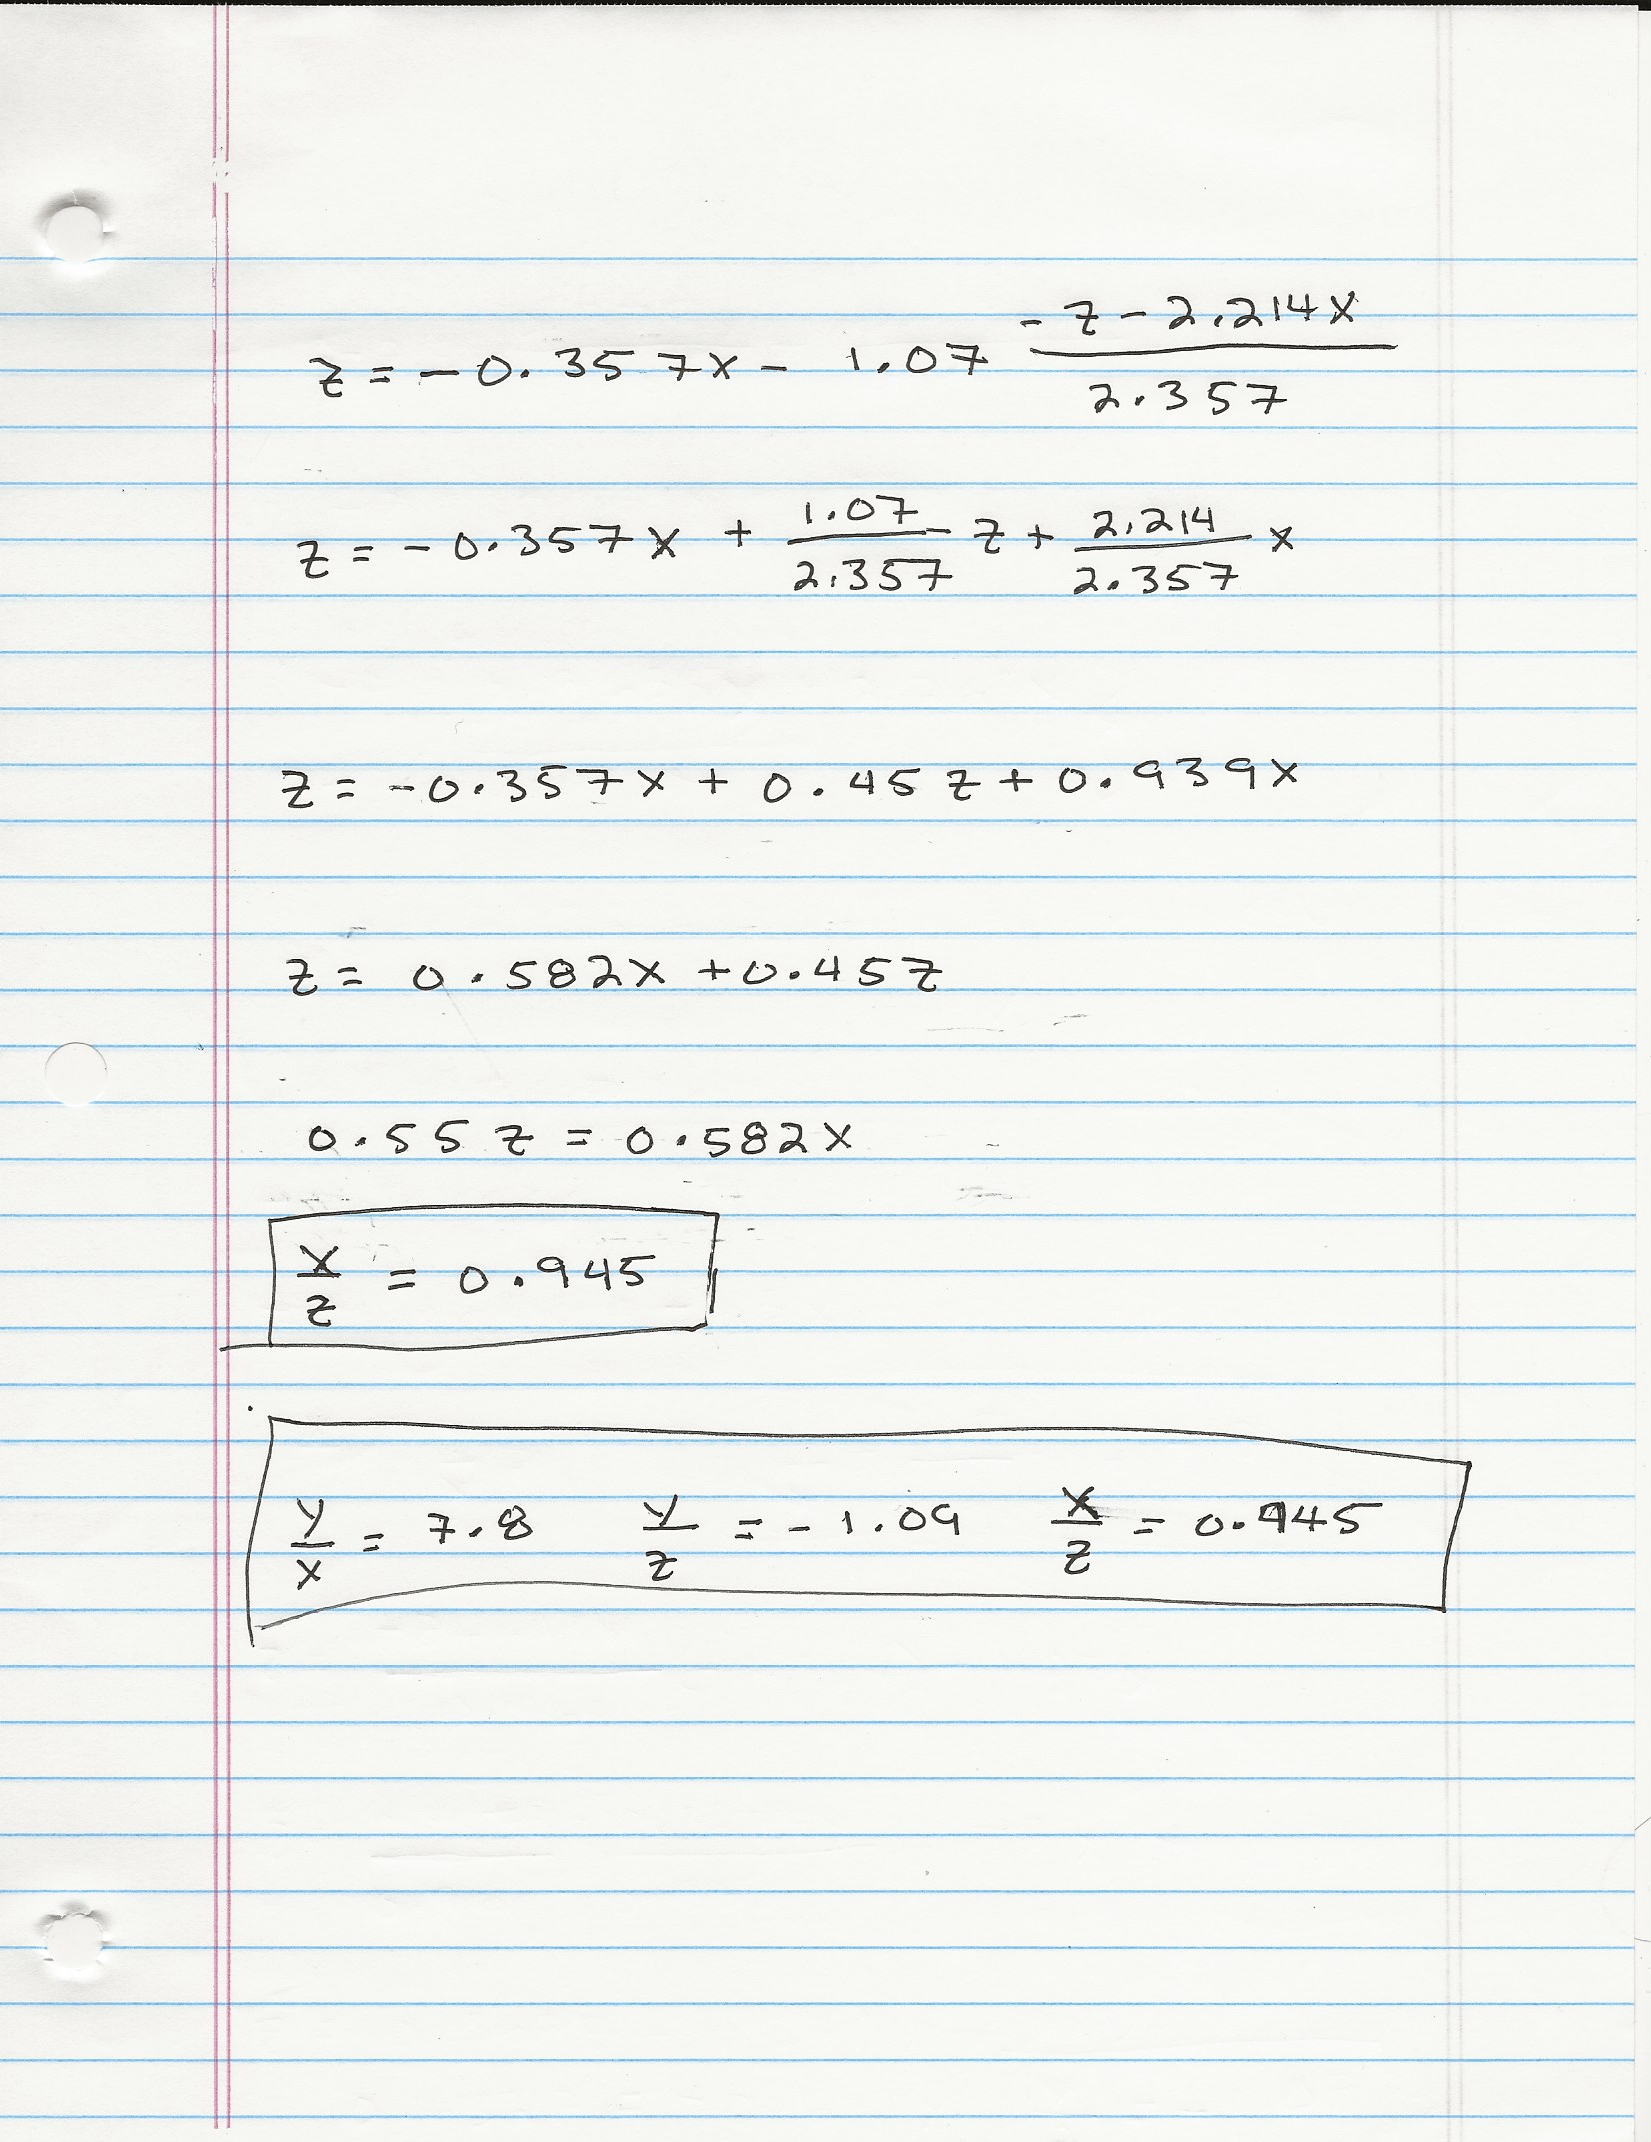 z = -0.357x - 1.07 (-z - 2.214x)/2.357
z = -0.357x + 1.07/2.357 z + 2.214/2.357 x
z = -0.357x + 0.45z + 0.939x
z = 0.582x + 0.45z
0.55z = 0.582x
x/z = 0.945
y/x = 7.8 y/z = -1.09 x/z = 0.945